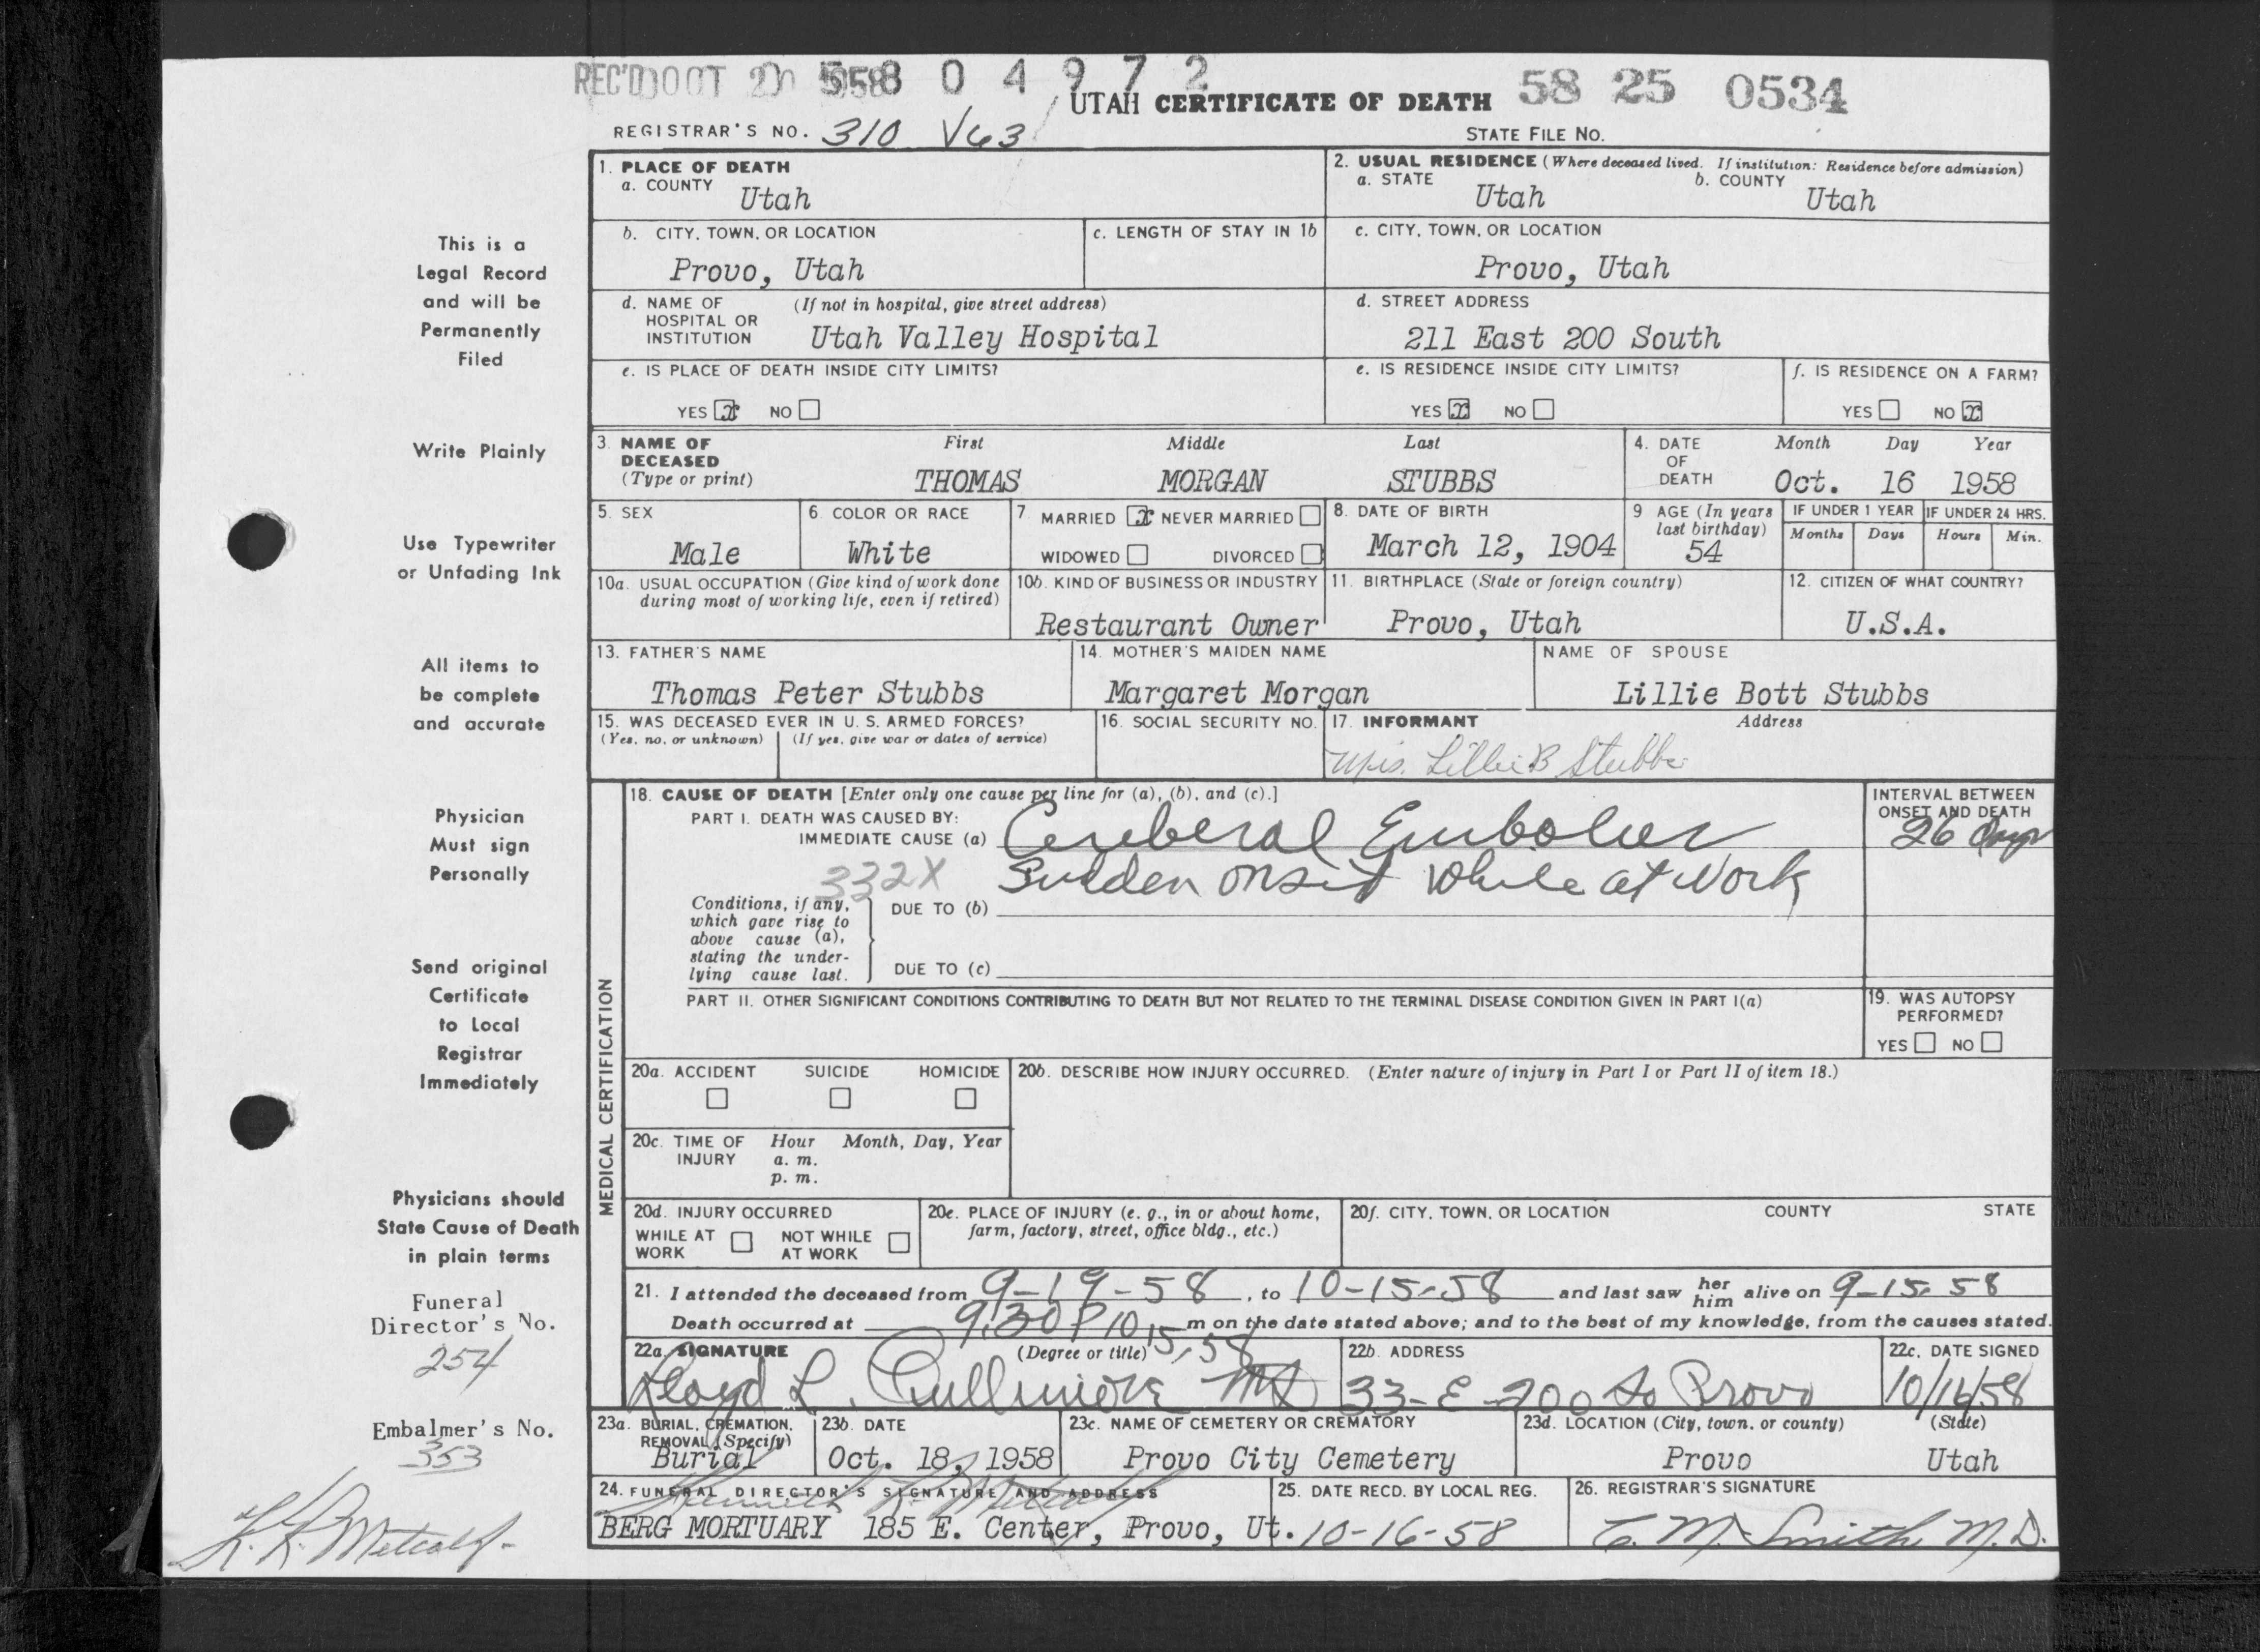 REC'D OCT 20 1958
58 0 4 9 7 2
UTAH CERTIFICATE OF DEATH 58 25 0534
REGISTRAR'S NO. 310 V63
STATE FILE NO.
This is a
Legal Record
and will be
Permanently
Filed
Write Plainly
Use Typewriter
or Unfading Ink
All items to
be complete
and accurate
Physician
Must sign
Personally
Send original
Certificate
to Local
Registrar
Immediately
Physicians should
State Cause of Death
in plain terms
Funeral
Director's No.
254
Embalmer's No.
353
K. K. Metcalf
1. PLACE OF DEATH
a. COUNTY
Utah
2. USUAL RESIDENCE (Where deceased lived. If institution: Residence before admission)
a. STATE
Utah
b. COUNTY
Utah
b. CITY, TOWN, OR LOCATION
Provo, Utah
c. LENGTH OF STAY IN 1b
c. CITY, TOWN, OR LOCATION
Provo, Utah
d. NAME OF (If not in hospital, give street address)
HOSPITAL OR
INSTITUTION Utah Valley Hospital
d. STREET ADDRESS
211 East 200 South
e. IS PLACE OF DEATH INSIDE CITY LIMITS?
YES x NO
e. IS RESIDENCE INSIDE CITY LIMITS?
YES x NO
f. IS RESIDENCE ON A FARM?
YES NO x
3. NAME OF First Middle Last
DECEASED
(Type or print) THOMAS MORGAN STUBBS
4. DATE Month Day Year
OF
DEATH Oct. 16 1958
5. SEX
Male
6. COLOR OR RACE
White
7. MARRIED x NEVER MARRIED
WIDOWED DIVORCED
8. DATE OF BIRTH
March 12, 1904
9 AGE (In years
last birthday)
54
IF UNDER 1 YEAR
Months Days
IF UNDER 24 HRS.
Hours Min.
10a. USUAL OCCUPATION (Give kind of work done
during most of working life, even if retired)
10b. KIND OF BUSINESS OR INDUSTRY
Restaurant Owner
11. BIRTHPLACE (State or foreign country)
Provo, Utah
12. CITIZEN OF WHAT COUNTRY?
U.S.A.
13. FATHER'S NAME
Thomas Peter Stubbs
14. MOTHER'S MAIDEN NAME
Margaret Morgan
NAME OF SPOUSE
Lillie Bott Stubbs
15. WAS DECEASED EVER IN U. S. ARMED FORCES?
(Yes, no, or unknown) (If yes, give war or dates of service)
16. SOCIAL SECURITY NO.
17. INFORMANT Address
Mrs. Lillie B Stubbs
MEDICAL CERTIFICATION
18. CAUSE OF DEATH [Enter only one cause per line for (a), (b), and (c).]
PART I. DEATH WAS CAUSED BY:
IMMEDIATE CAUSE (a) Cereberal Embolus
332X Sudden onset while at Work
INTERVAL BETWEEN
ONSET AND DEATH
26 days
Conditions, if any,
which gave rise to
above cause (a),
stating the under-
lying cause last.
DUE TO (b)
DUE TO (c)
PART II. OTHER SIGNIFICANT CONDITIONS CONTRIBUTING TO DEATH BUT NOT RELATED TO THE TERMINAL DISEASE CONDITION GIVEN IN PART I(a)
19. WAS AUTOPSY
PERFORMED?
YES NO
20a. ACCIDENT SUICIDE HOMICIDE
20b. DESCRIBE HOW INJURY OCCURRED. (Enter nature of injury in Part I or Part II of item 18.)
20c. TIME OF Hour Month, Day, Year
INJURY a. m.
p. m.
20d. INJURY OCCURRED
WHILE AT NOT WHILE
WORK AT WORK
20e. PLACE OF INJURY (e. g., in or about home,
farm, factory, street, office bldg., etc.)
20f. CITY, TOWN, OR LOCATION COUNTY STATE
21. I attended the deceased from 9-19-58, to 10-15-58 and last saw her him alive on 9-15-58
Death occurred at 9:30 P 10,15,58 m on the date stated above; and to the best of my knowledge, from the causes stated.
22a. SIGNATURE (Degree or title)
Lloyd L. Cullimore MD
22b. ADDRESS
33-E-200 So Provo
22c. DATE SIGNED
10/16/58
23a. BURIAL, CREMATION,
REMOVAL (Specify)
Burial
23b. DATE
Oct. 18, 1958
23c. NAME OF CEMETERY OR CREMATORY
Provo City Cemetery
23d. LOCATION (City, town, or county) (State)
Provo Utah
24. FUNERAL DIRECTOR'S SIGNATURE AND ADDRESS
Kenneth K. Metcalf
BERG MORTUARY 185 E. Center, Provo, Ut.
25. DATE RECD. BY LOCAL REG.
10-16-58
26. REGISTRAR'S SIGNATURE
C. M. Smith M.D.